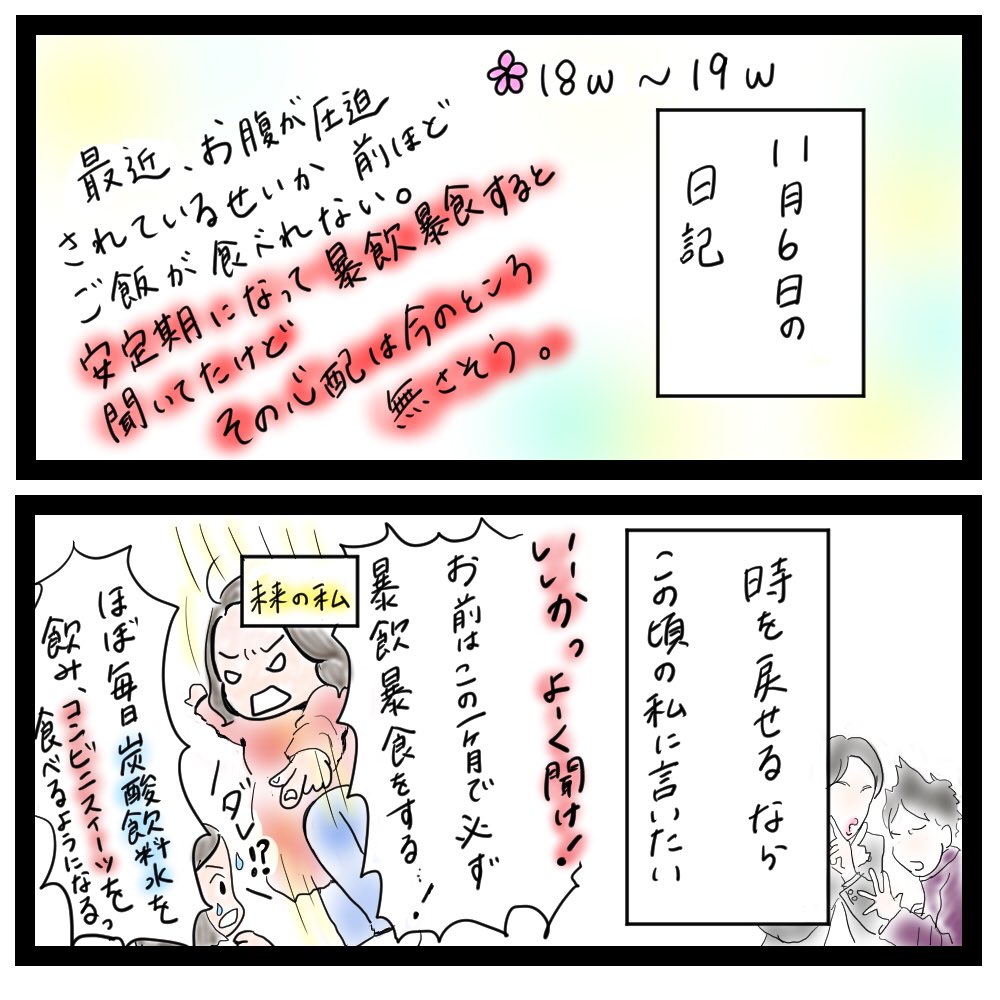 18w～19w
11月6日の
日記
最近、お腹が圧迫
されているせいか 前ほど
ご飯が食べれない。
安定期になって暴飲暴食すると
聞いてたけど
その心配は今のところ
無さそう。
時を戻せるなら
この頃の私に言いたい
いーかっよーく聞け！
お前はこの1ヶ月で必ず
暴飲暴食をする…！
未来の私
ダレ!?
ほぼ毎日炭酸飲料水を
飲み、コンビニスイーツを
食べるようになるっ